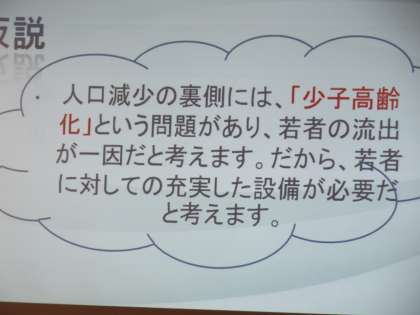 仮説
・ 人口減少の裏側には、「少子高齢
化」という問題があり、若者の流出
が一因だと考えます。だから、若者
に対しての充実した設備が必要だ
と考えます。